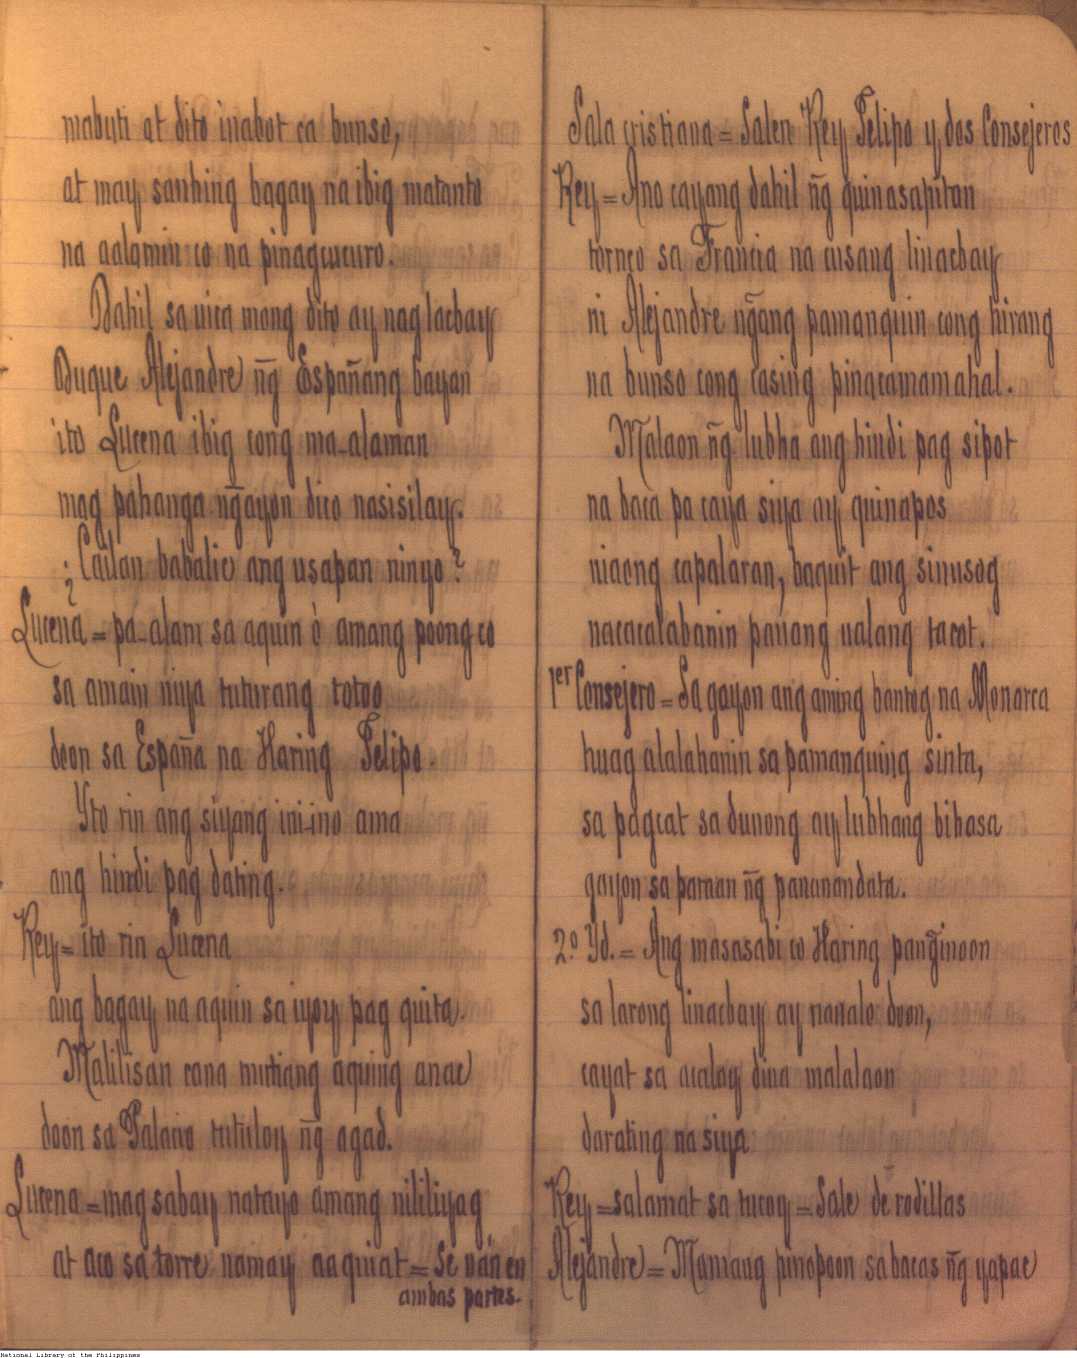 mabuti at dito inabot ca bunso,
at may sanhing bagay na ibig matanto
na aalamin co na pinagcucuro.
Dahil sa uica mong dito ay naglacbay
Duque Alejandre ñg Españang bayan
ito Lucena ibig cong ma-alaman
mag pahanga ñgayon dico nasisilay.
¿Cailan babalic ang usapan ninyo?
Lucena = pa-alam sa aquin ò amang poong co
sa amain niya tuturang totoo
doon sa España na Haring Felipo.
Yto rin ang siyang inii-ino ama
ang hindi pag dating.
Rey = ito rin Lucena
ang bagay na aquin sa iyoy pag quita.
Malilisan cana mutiang aquing anac
doon sa Palacio tutuloy ñg agad.
Lucena = mag sabay natayo amang nililiyag
at aco sa torre namay aaquiat = Se ván en
ambas partes.
Sala cristiana = Salen Rey Felipo y dos Consejeros
Rey = Ano cayang dahil ñg quinasapitan
torneo sa Francia na cusang linacbay
ni Alejandre ñgang pamanquin cong hirang
na bunso cong casing pinacamamahal.
Malaon ñg lubha ang hindi pag sipot
na baca pa caya siya ay quinapos
niaong capalaran, baquit ang sinusog
nacacalabanin pauang ualang tacot.
1er Consejero = Sa gayon ang aming bantog na Monarca
huag alalahanin sa pamanquing sinta,
sa pagcat sa dunong ay lubhang bihasa
gayon sa paraan ñg pananandata.
2.º Yd. = Ang masasabi co Haring panginoon
sa larong linacbay ay nanalo doon,
cayat sa acalay diua malalaon
darating na siya
Rey = salamat sa tucoy = Sale de rodillas
Alejandre = Mamang pinopoon sa bacas ñg yapac